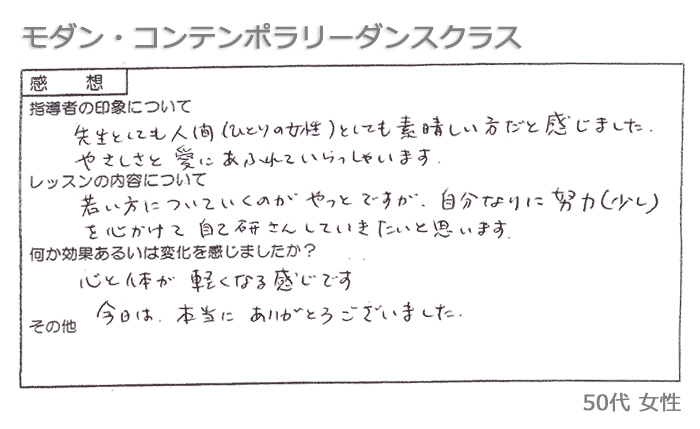 モダン・コンテンポラリーダンスクラス
感　想
指導者の印象について
先生としても人間(ひとりの女性)としても素晴しい方だと感じました.
やさしさと愛にあふれていらっしゃいます.
レッスンの内容について
若い方についていくのがやっとですが、自分なりに努力(少し)
を心がけて自己研さんしていきたいと思います.
何か効果あるいは変化を感じましたか？
心と体が軽くなる感じです
今日は、本当にありがとうございました.
その他
50代 女性